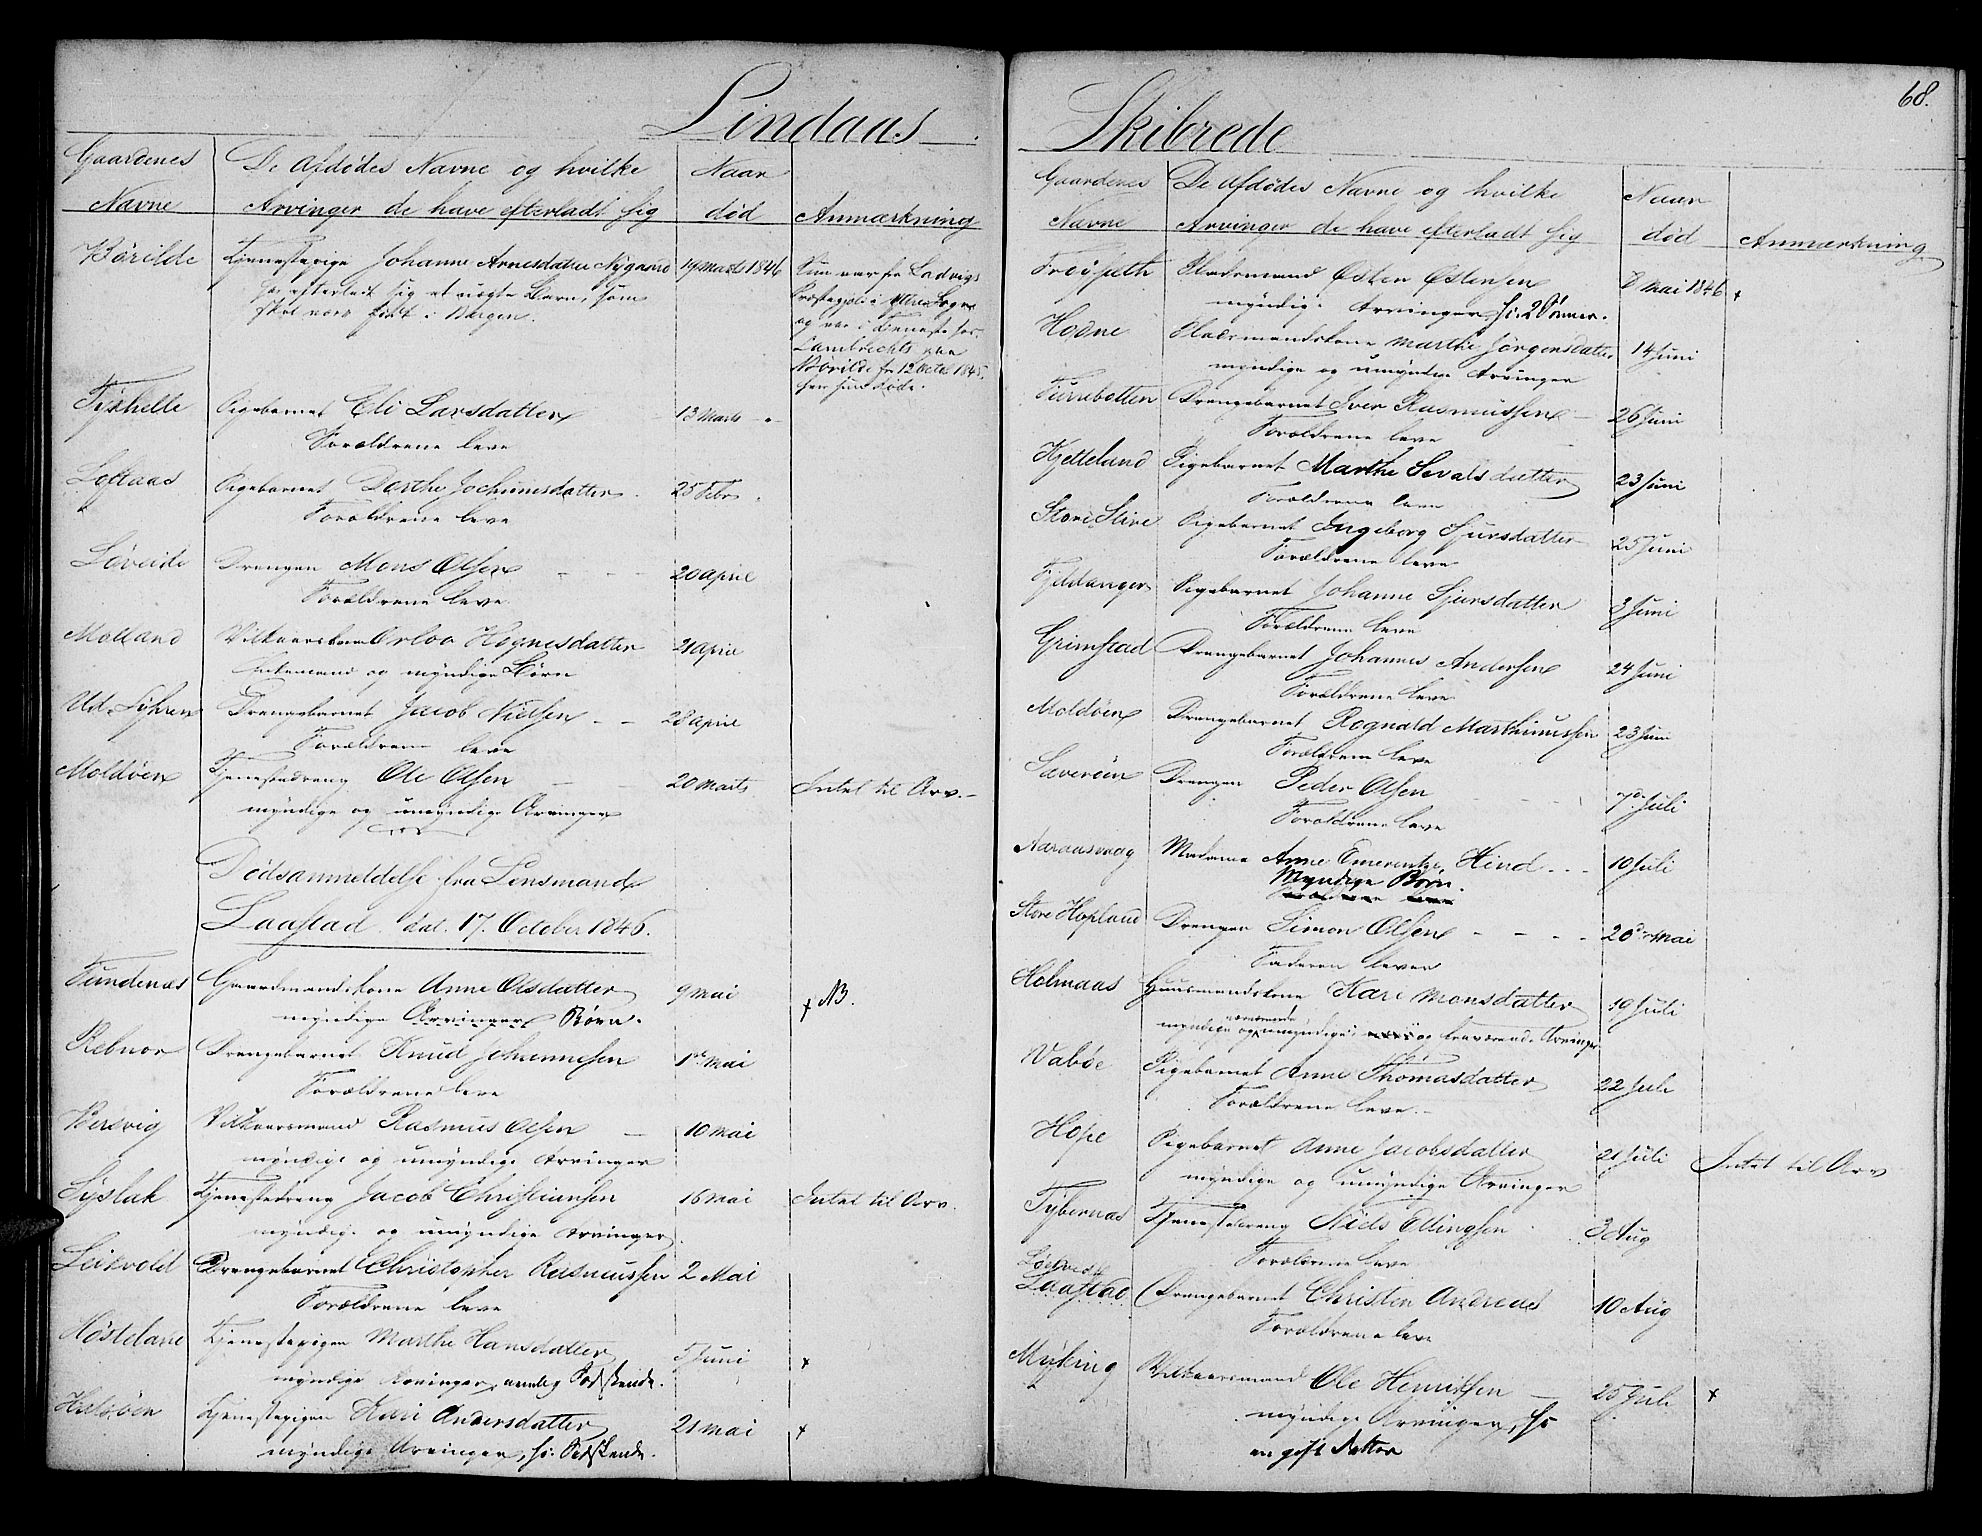 Lindaas
Gaardenes Navne
De Afdødes Navne og hvilke
Arvinger de have efterladt sig
Naar død
Anmærkning
Børilde Tjenestepige Johanne Arnesdatter Nygaard 19 Marts 1846 Hun var fra Ladvigs
har efterladt sig et uægte Barn, som Præstegjeld i Sogn
skal være født i Bergen. og var i Tjeneste hos
Lambrechts paa
Børilde fr 12 Octb 1845,
hun døde.
Tyshelle Pigebarnet Eli Larsdatter 13 Marts
Forældrene leve
Loftaas Pigebarnet Dorthe Jochumsdatter 25 Febr
Forældrene leve
Løveide Drengen Mons Olsen 20 April
Forældrene leve.
Molland Vilkaarskone Hognesdatter 21 April
Enkemand og myndige Børn
Ud. Syhren Drengebarnet Jacob Nielsen 28 April
Forældrene leve
Moldøen Tjenestedreng Ole Olsen 20 Marts Intet til Arv.
myndige og umyndige Arvinger
Dødsanmeldelse fra Lensmand
Laastad dat. 17. October 1846.
Fundenæs Gaardmandskone Anne Olsdatter 9 Mai + NB.
myndige Arvinger Børn.
Rebnor Drengebarnet Knud Johannesen 1ste Mai
Forældrene leve
Bersvig Vilkaarsmand Rasmus Olsen 10 Mai
myndige og umyndige Arvinger
Syslak Tjenestedreng Jacob Christiansen 16 Mai Intet til Arv.
myndige og umyndige Arvinger.
Leikvold Drengebarnet Christopher Rasmussen 2 Mai
Forældrene leve
Høsteland Tjenestepigen Marthe Hansdatter 5 Juni +
myndige Arvinger, nemlig Sødskende.
Tjenestepigen Kari Andersdatter 21 Mai +
myndige Arvinger, ɔ: Sødskende.
68.
Skibrede
Gaardenes Navne
De Afdødes Navne og hvilke
Arvinger de have efterladt sig
Naar død
Anmærkning
Pladsmand Østen Østensen 8 Mai 1846 +
myndige Arvinger ɔ: 2 Sønner.
Hodne Pladsmandskone Marthe Jørgensdatter 14 Juni
myndige og umyndige Arvinger
Furrebotten Drengebarnet Iver Rasmussen 26 Juni
Forældrene leve
Kjelleland Pigebarnet Marthe Sevalsdatter 23 Juni
Forældrene leve
Store Stire Pigebarnet Ingeborg Sjursdatter 25 Juni
Forældrene leve
Fjeldanger Pigebarnet Johanne Sjursdatter 3 Juni
Forældrene leve
Grimstad Drengebarnet Johannes Andersen 24 Juni
Forældrene leve
Moldøen Drengebarnet Rognald Marthinussen 23 Juni
Forældrene leve
Sæverøen Drengen Peder Olsen 7de Juli
Forældrene leve
Aaraasvaag Madame Anne Emerentze Hind 10 Juli
Myndige Børn.
Forældrene leve
Store Hopland Drengen Simon Olsen 20de Mai
Faderen lever
Holmaas Huusmandskone Kari Monsdatter 19 Juli
nærværende
myndige og umyndige og fraværende Arvinger
Vabøe Pigebarnet Anne Thomasdatter 22 Juli
Forældrene leve.
Hope Pigebarnet Anne Jacobsdatter 21 Juli Intet til Arv
myndige og umyndige Arvinger
Fybernæs Tjenestedreng Niels Ellingsen 3 Aug
Forældrene leve
Laastad Drengebarnet Christen Andreas 10 Aug
Forældrene leve
Myking Vilkaarsmand Ole Henriksen 25 Juli +
myndige Arvinger, ɔ:
en gift Datter